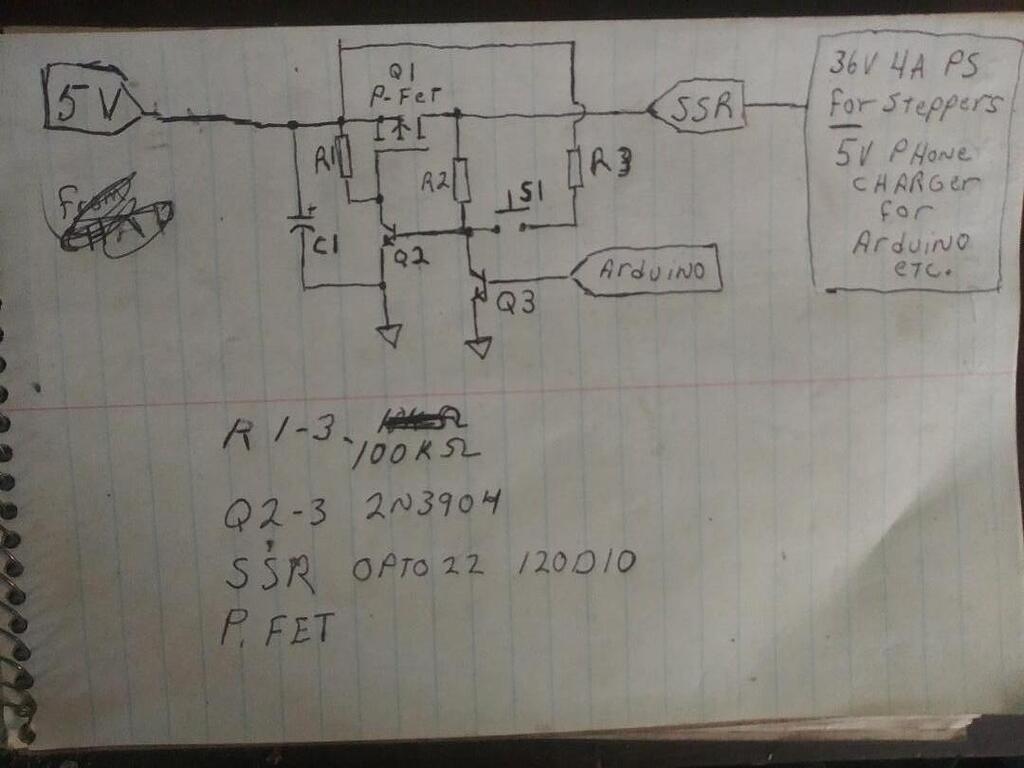 5V
Q1
P-Fet
R1
R2
R3
S1
C1
+
Q2
Q3
SSR
Arduino
36V 4A PS
for Steppers
5V PHONE
CHARGer
for
Arduino
etc.
From
R 1-3-
100KΩ
Q2-3 2N3904
SSR OPTO22 120D10
P. FET